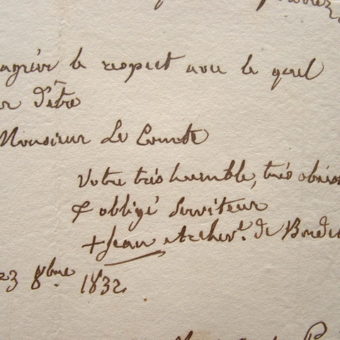 agréér le respect avec le quel
r d'être
Monsieur Le Comte
votre très humble, très obéis
& obligé serviteur
+ Jean Archev. de Bordea
23 8bre 1832.